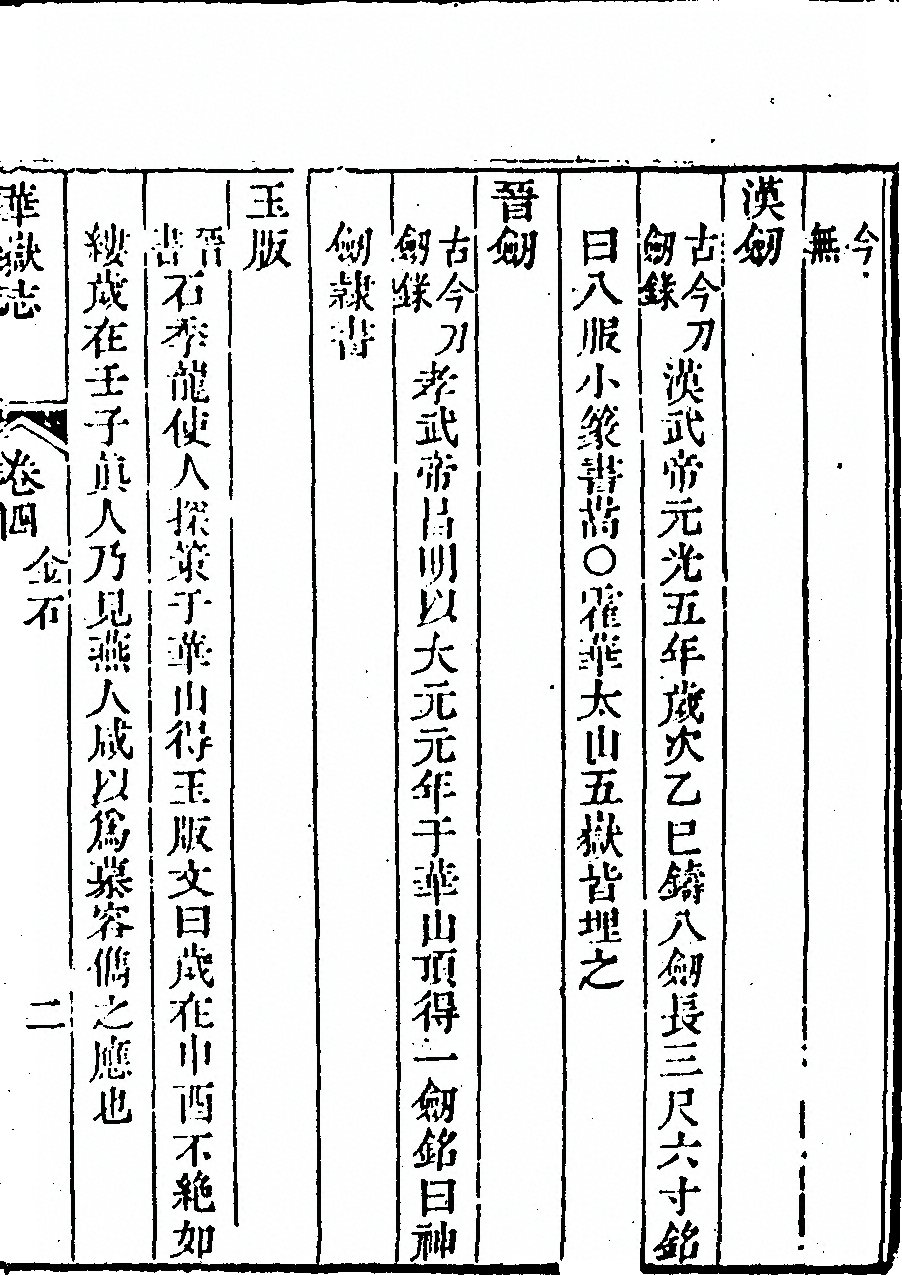 今無
漢劒
古今刀劒錄漢武帝元光五年歲次乙巳鑄八劒長三尺六寸銘
曰八服小篆書嵩○霍華太山五嶽皆埋之
晉劒
古今刀劒錄孝武帝昌明以大元元年于華山頂得一劒銘曰神
劒隷書
玉版
晉書石季龍使人探策于華山得玉版文曰歲在申酉不絶如
縷歲在壬子眞人乃見燕人咸以爲慕容儁之應也
華嶽志 卷四 金石 二